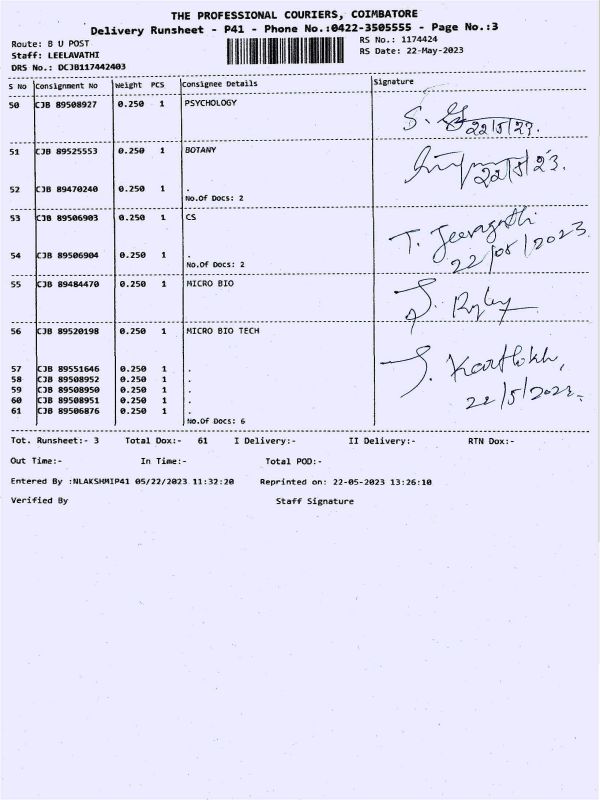 THE PROFESSIONAL COURIERS, COIMBATORE
Delivery Runsheet - P41 - Phone No.:0422-3505555 - Page No.:3
Route: B U POST
RS No.: 1174424
Staff: LEELAVATHI
RS Date: 22-May-2023
DRS No.: DCJB117442403
S No Consignment No Weight PCS Consignee Details Signature
50 CJB 89508927 0.250 1 PSYCHOLOGY
S. 22/5/23.
51 CJB 89525553 0.250 1 BOTANY
22/5/23.
52 CJB 89470240 0.250 1 .
No.Of Docs: 2
53 CJB 89506903 0.250 1 CS
T. 
22/05/2023
54 CJB 89506904 0.250 1 .
No.Of Docs: 2
55 CJB 89484470 0.250 1 MICRO BIO
56 CJB 89520198 0.250 1 MICRO BIO TECH
57 CJB 89551646 0.250 1 .
58 CJB 89508952 0.250 1 .
59 CJB 89508950 0.250 1 .
22/5/2023.
60 CJB 89508951 0.250 1 .
61 CJB 89506876 0.250 1 .
No.Of Docs: 6
Tot. Runsheet:- 3 Total Dox:- 61 I Delivery:- II Delivery:- RTN Dox:-
Out Time:- In Time:- Total POD:-
Entered By :NLAKSHMIP41 05/22/2023 11:32:20 Reprinted on: 22-05-2023 13:26:10
Verified By Staff Signature